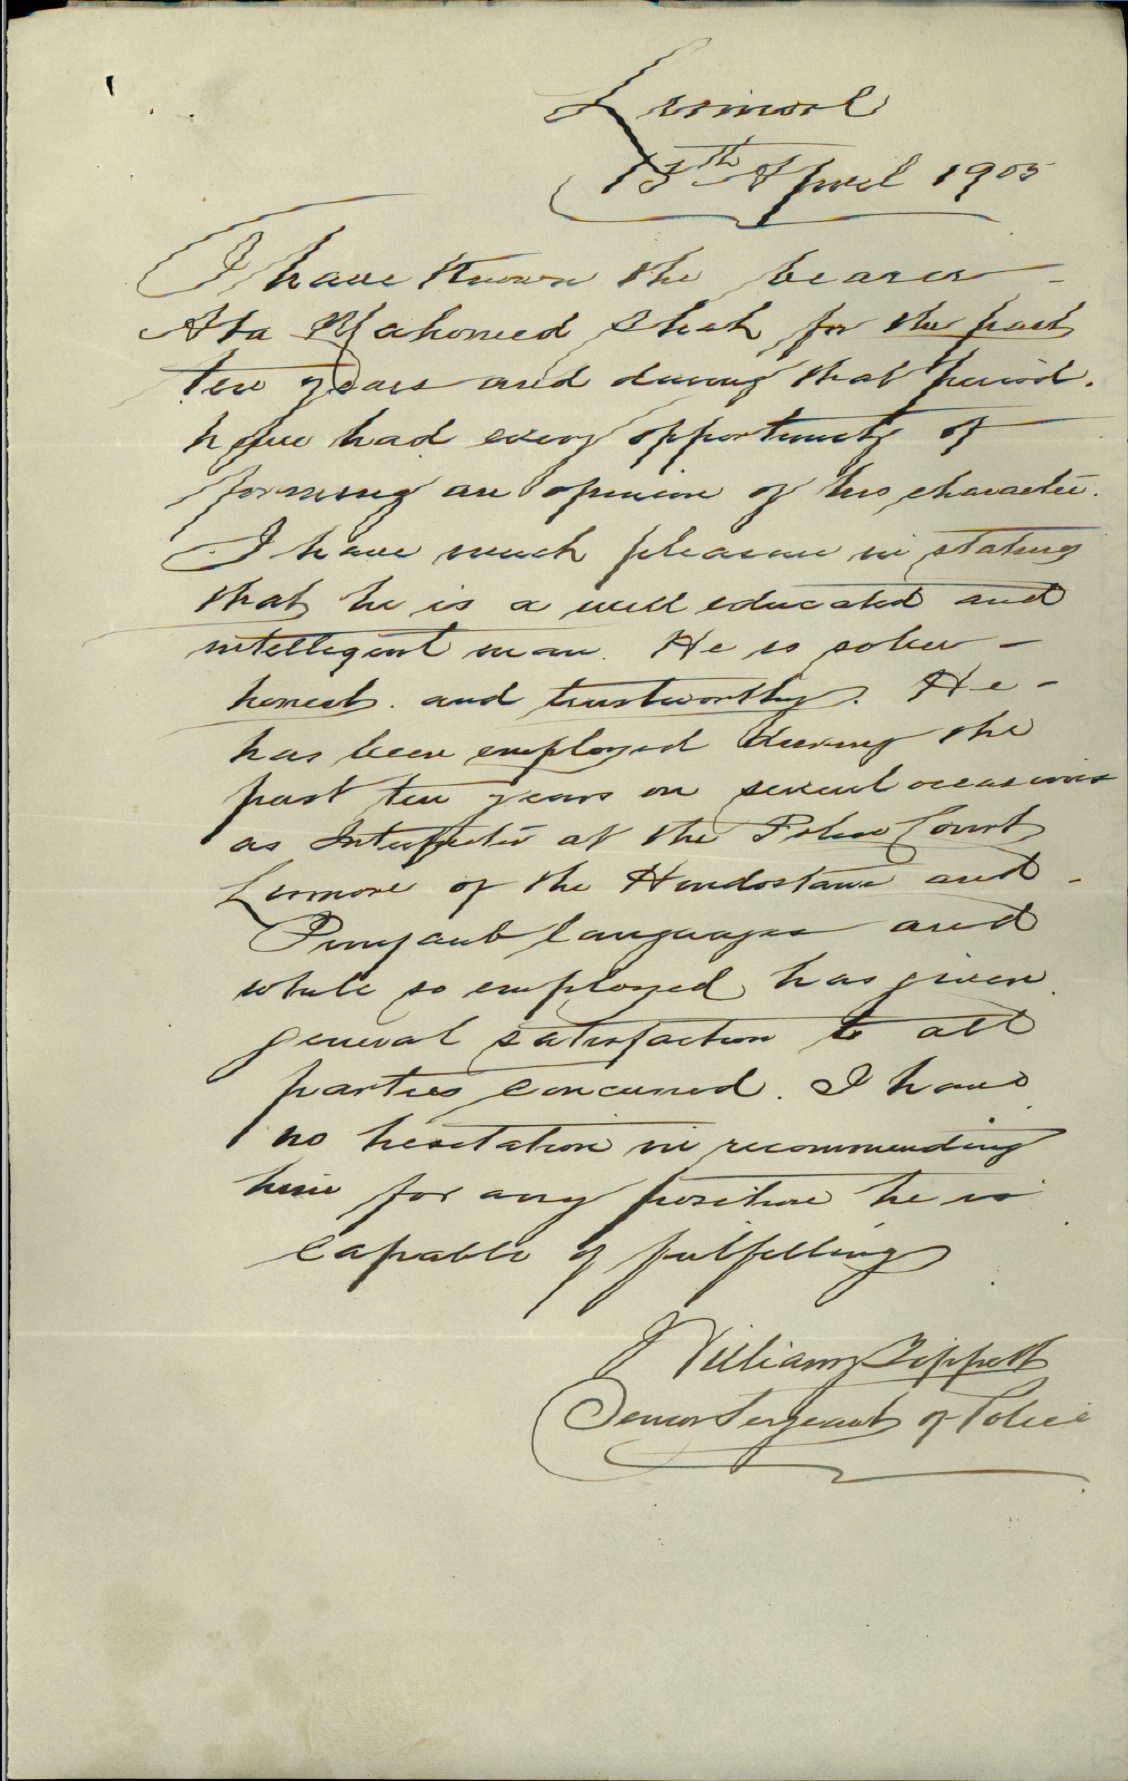 Lismore
13th April 1905
I have known the bearer
Ata Mahomed Shah for the past
ten years and during that period.
have had every opportunity of
forming an opinion of his character.
I have much pleasure in stating
that he is a well educated and
intelligent man. He is sober -
honest. and trustworthy. He -
has been employed during the
past ten years on several occasions
as Interpreter at the Police Court
Lismore of the Hindostani and -
Punjaub languages and
while so employed has given
general satisfaction to all
parties concerned. I have
no hesitation in recommending
him for any position he is
capable of fulfilling
William Tippett
Senior Sergeant of Police